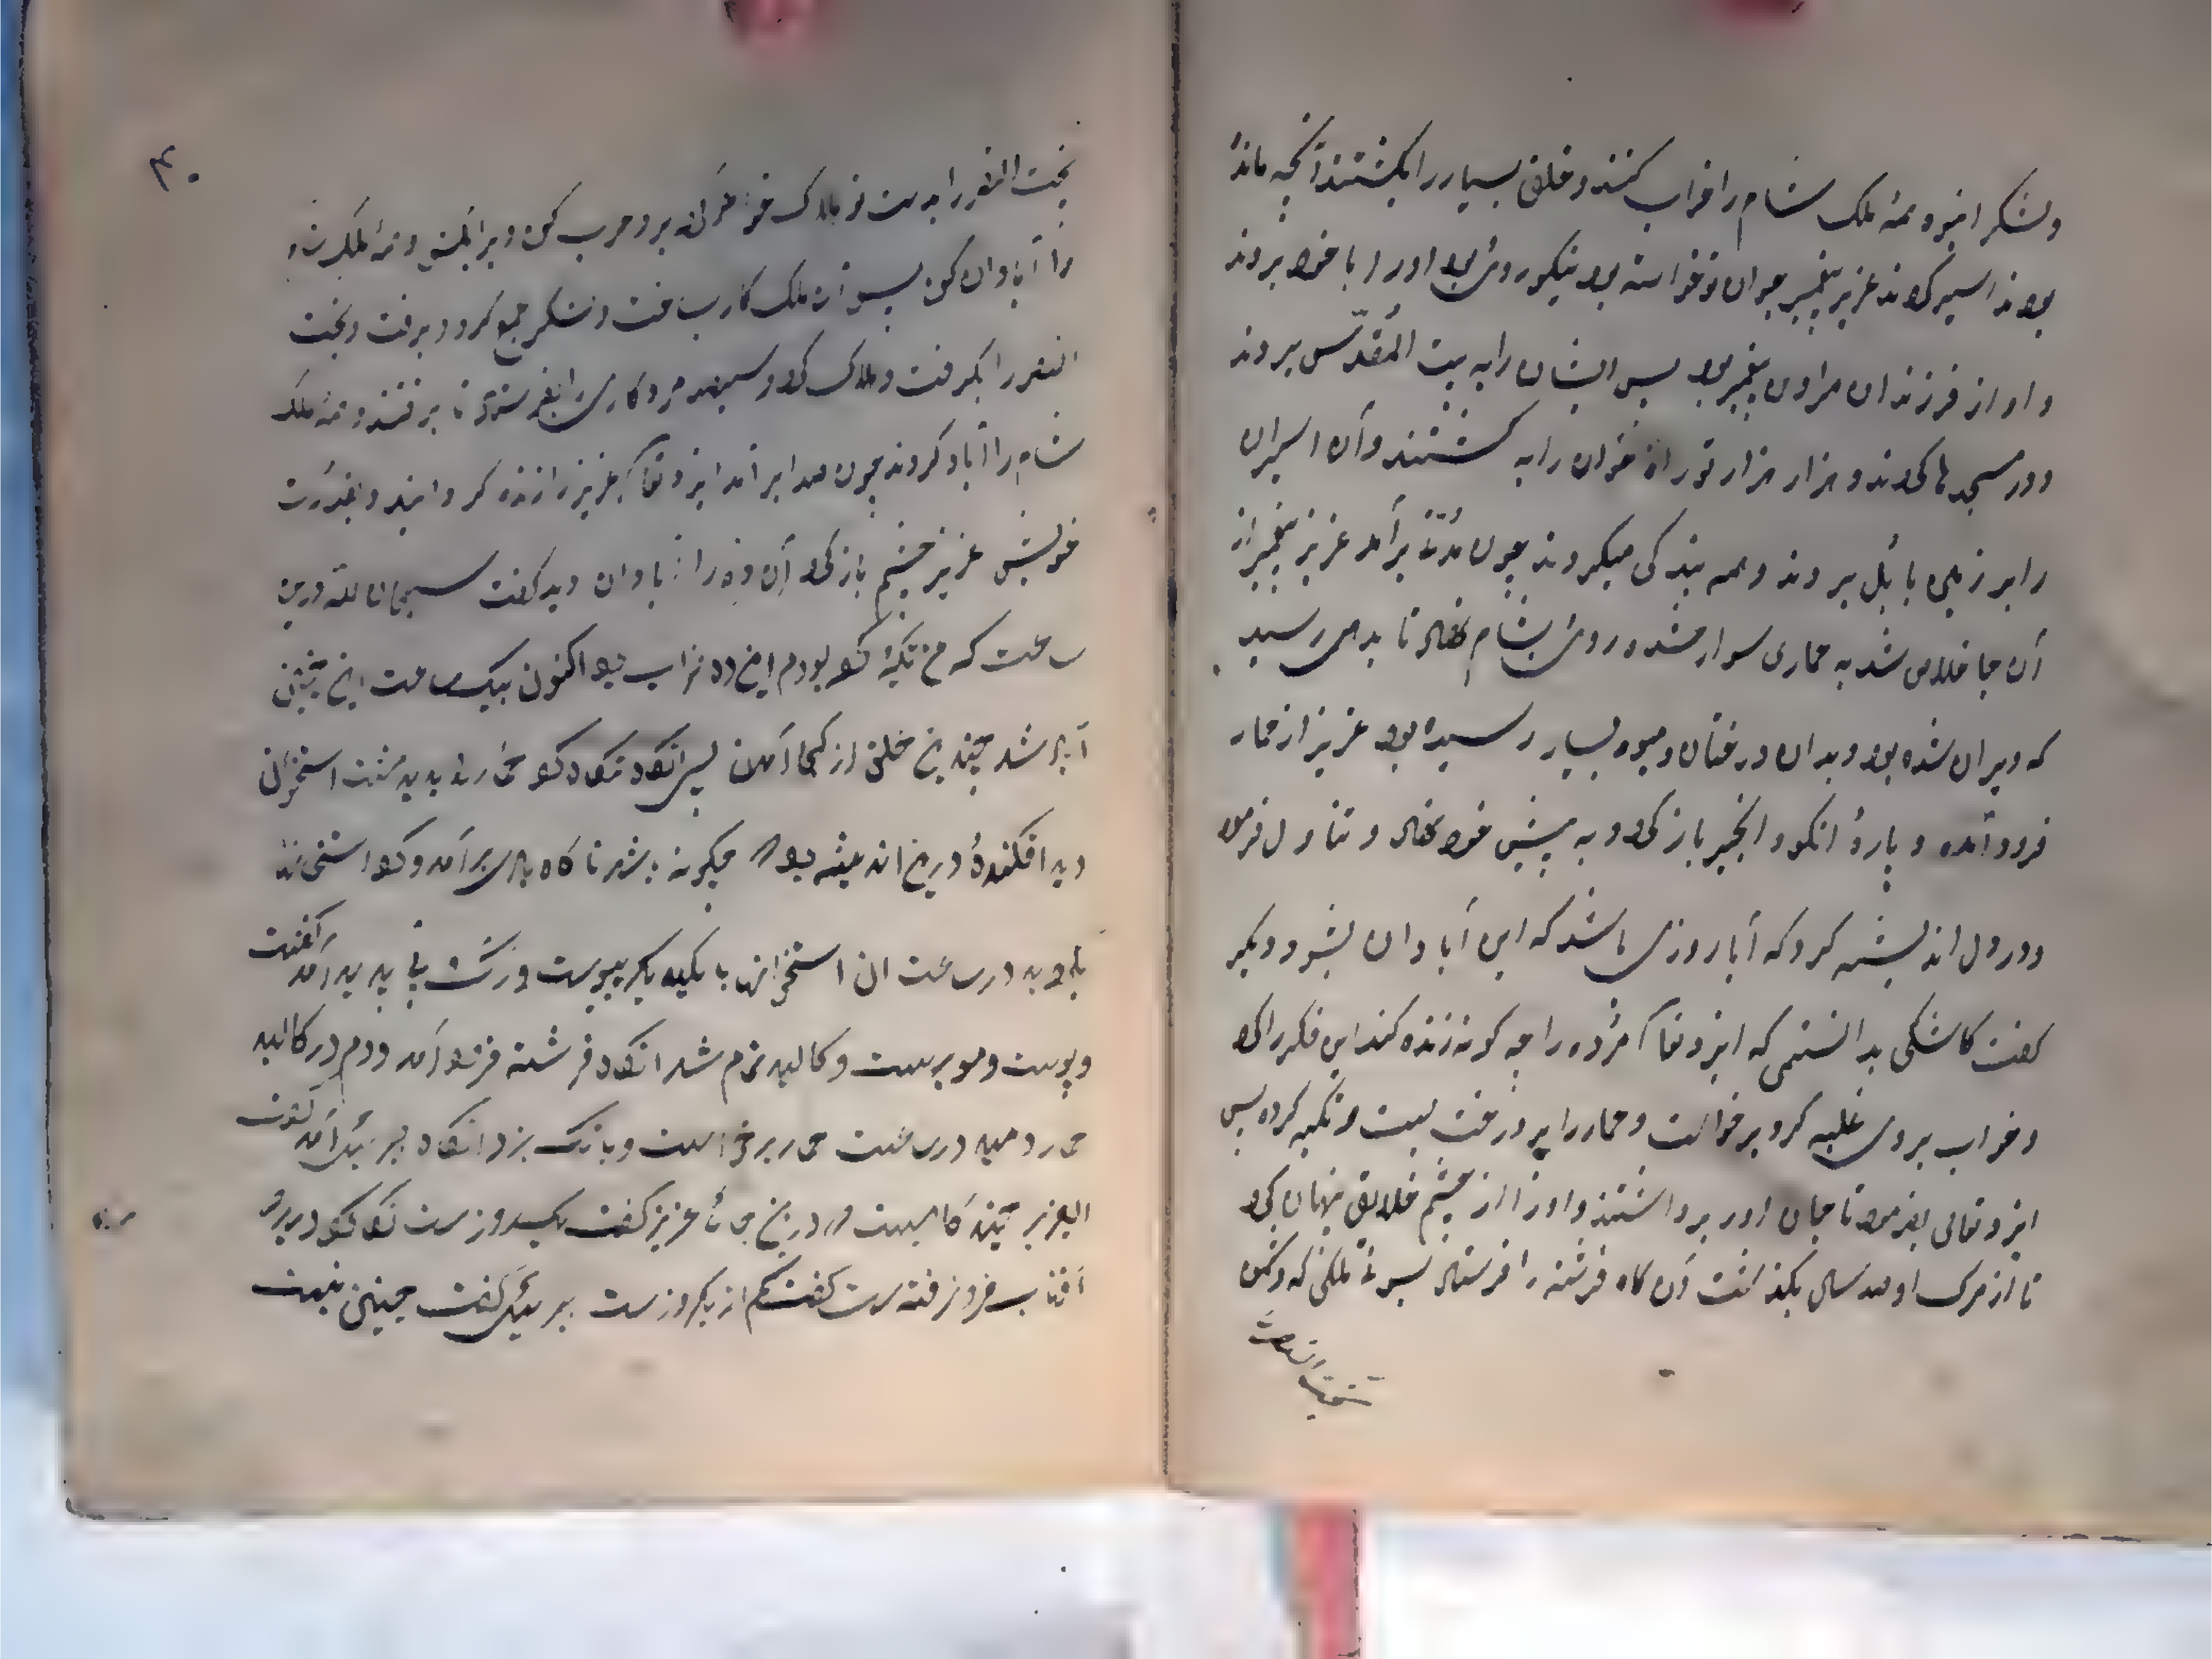 ولشکر انبوه همهٔ ملک شام را خراب کنند و خلق بسیار را بکشتند آنچه مانده
بودند اسیر کردند عزیر پیغمبر جوان نوخواسته بود نیکو روی بود او را با خود بردند
و او از فرزندان هرون پیغمبر بود پس ایشان را به بیت المقدّس بردند
و در مسجدها کردند و هزار هزار توراة خوان را به کشتند و آن اسیران
را بر زمین بابُل بردند و همه بندگی میکردند چون مُدّتی برآمد عزیر پیغمبر از
آن جا خلاص شد به حماری سوار شده روی بشام نهاد تا بدهی رسید
که ویران شده بود و بدان درختان و میوه بسیار رسیده بود عزیر از حمار
فرود آمده و پارهٔ انگور و انجیر باز کرد و به پیش خود نهاد و تناول فرمود
و در دل اندیشه کرد که آیا روزی باشد که این آبادان بشود و دیگر
گفت کاشکی بدانستمی که ایزد تعا مُرده را چه گونه زنده کند این فکر را کرد
و خواب بروی غلبه کرد برخواست و حمار را بر درخت بست و تکیه کرده پس
ایزد تعالی بفرمود تا جان او را برداشتند و او را از چشم خلایق پنهان کرد
تا از مرک او صد سال بگذشت آن گاه فرشته را فرستاد بسوئے ملکی که
بخت النصر را بدست تو هلاک خواهم کرد برو حرب کن و همهٔ ملک شام
را آبادان کن پس آن ملک کار بساخت و لشکر جمع کرد و برفت و بخت
النصر را بگرفت و هلاک کرد و سیصد مرد کاری را بفرستاد تا برفتند و همهٔ ملک
شام را آباد کردند چون صد سال برآمد ایزد تعا عزیر را زنده گردانید و بقدرت
خویش عزیر چشم باز کرد آن ده را آبادان دید گفت سبحان الله درین
ساعت که من تکیه کرد بودم این ده خراب بود اکنون بیک ساعت این چنین
آباد شد چندین خلق از کجا آمدن پس انگاه نگاه کرد حمار را ندید مشت استخوان
دید افکندهٔ درین اندیشه بود که چگونه باشد ناگاه بادی برآمد و گرد استخوانها
در ساعت ان استخوانها با یکدیگر بپیوست و رگ و پی پدید آمد
و پوست و مو برست و کالبد تمام شد انگاه فرشته فرود آمد و دم در کالبد
حمار دمید در ساعت حمار برخواست و بانگ بزد انگاه جبرئیل آمد گفت
العزیر چند گاهست که درین جائے عزیر گفت یکروز است نگاه کرد دید
آفتاب فرو نرفته است گفت کم از یکروز است جبرئیل گفت چنین نیست